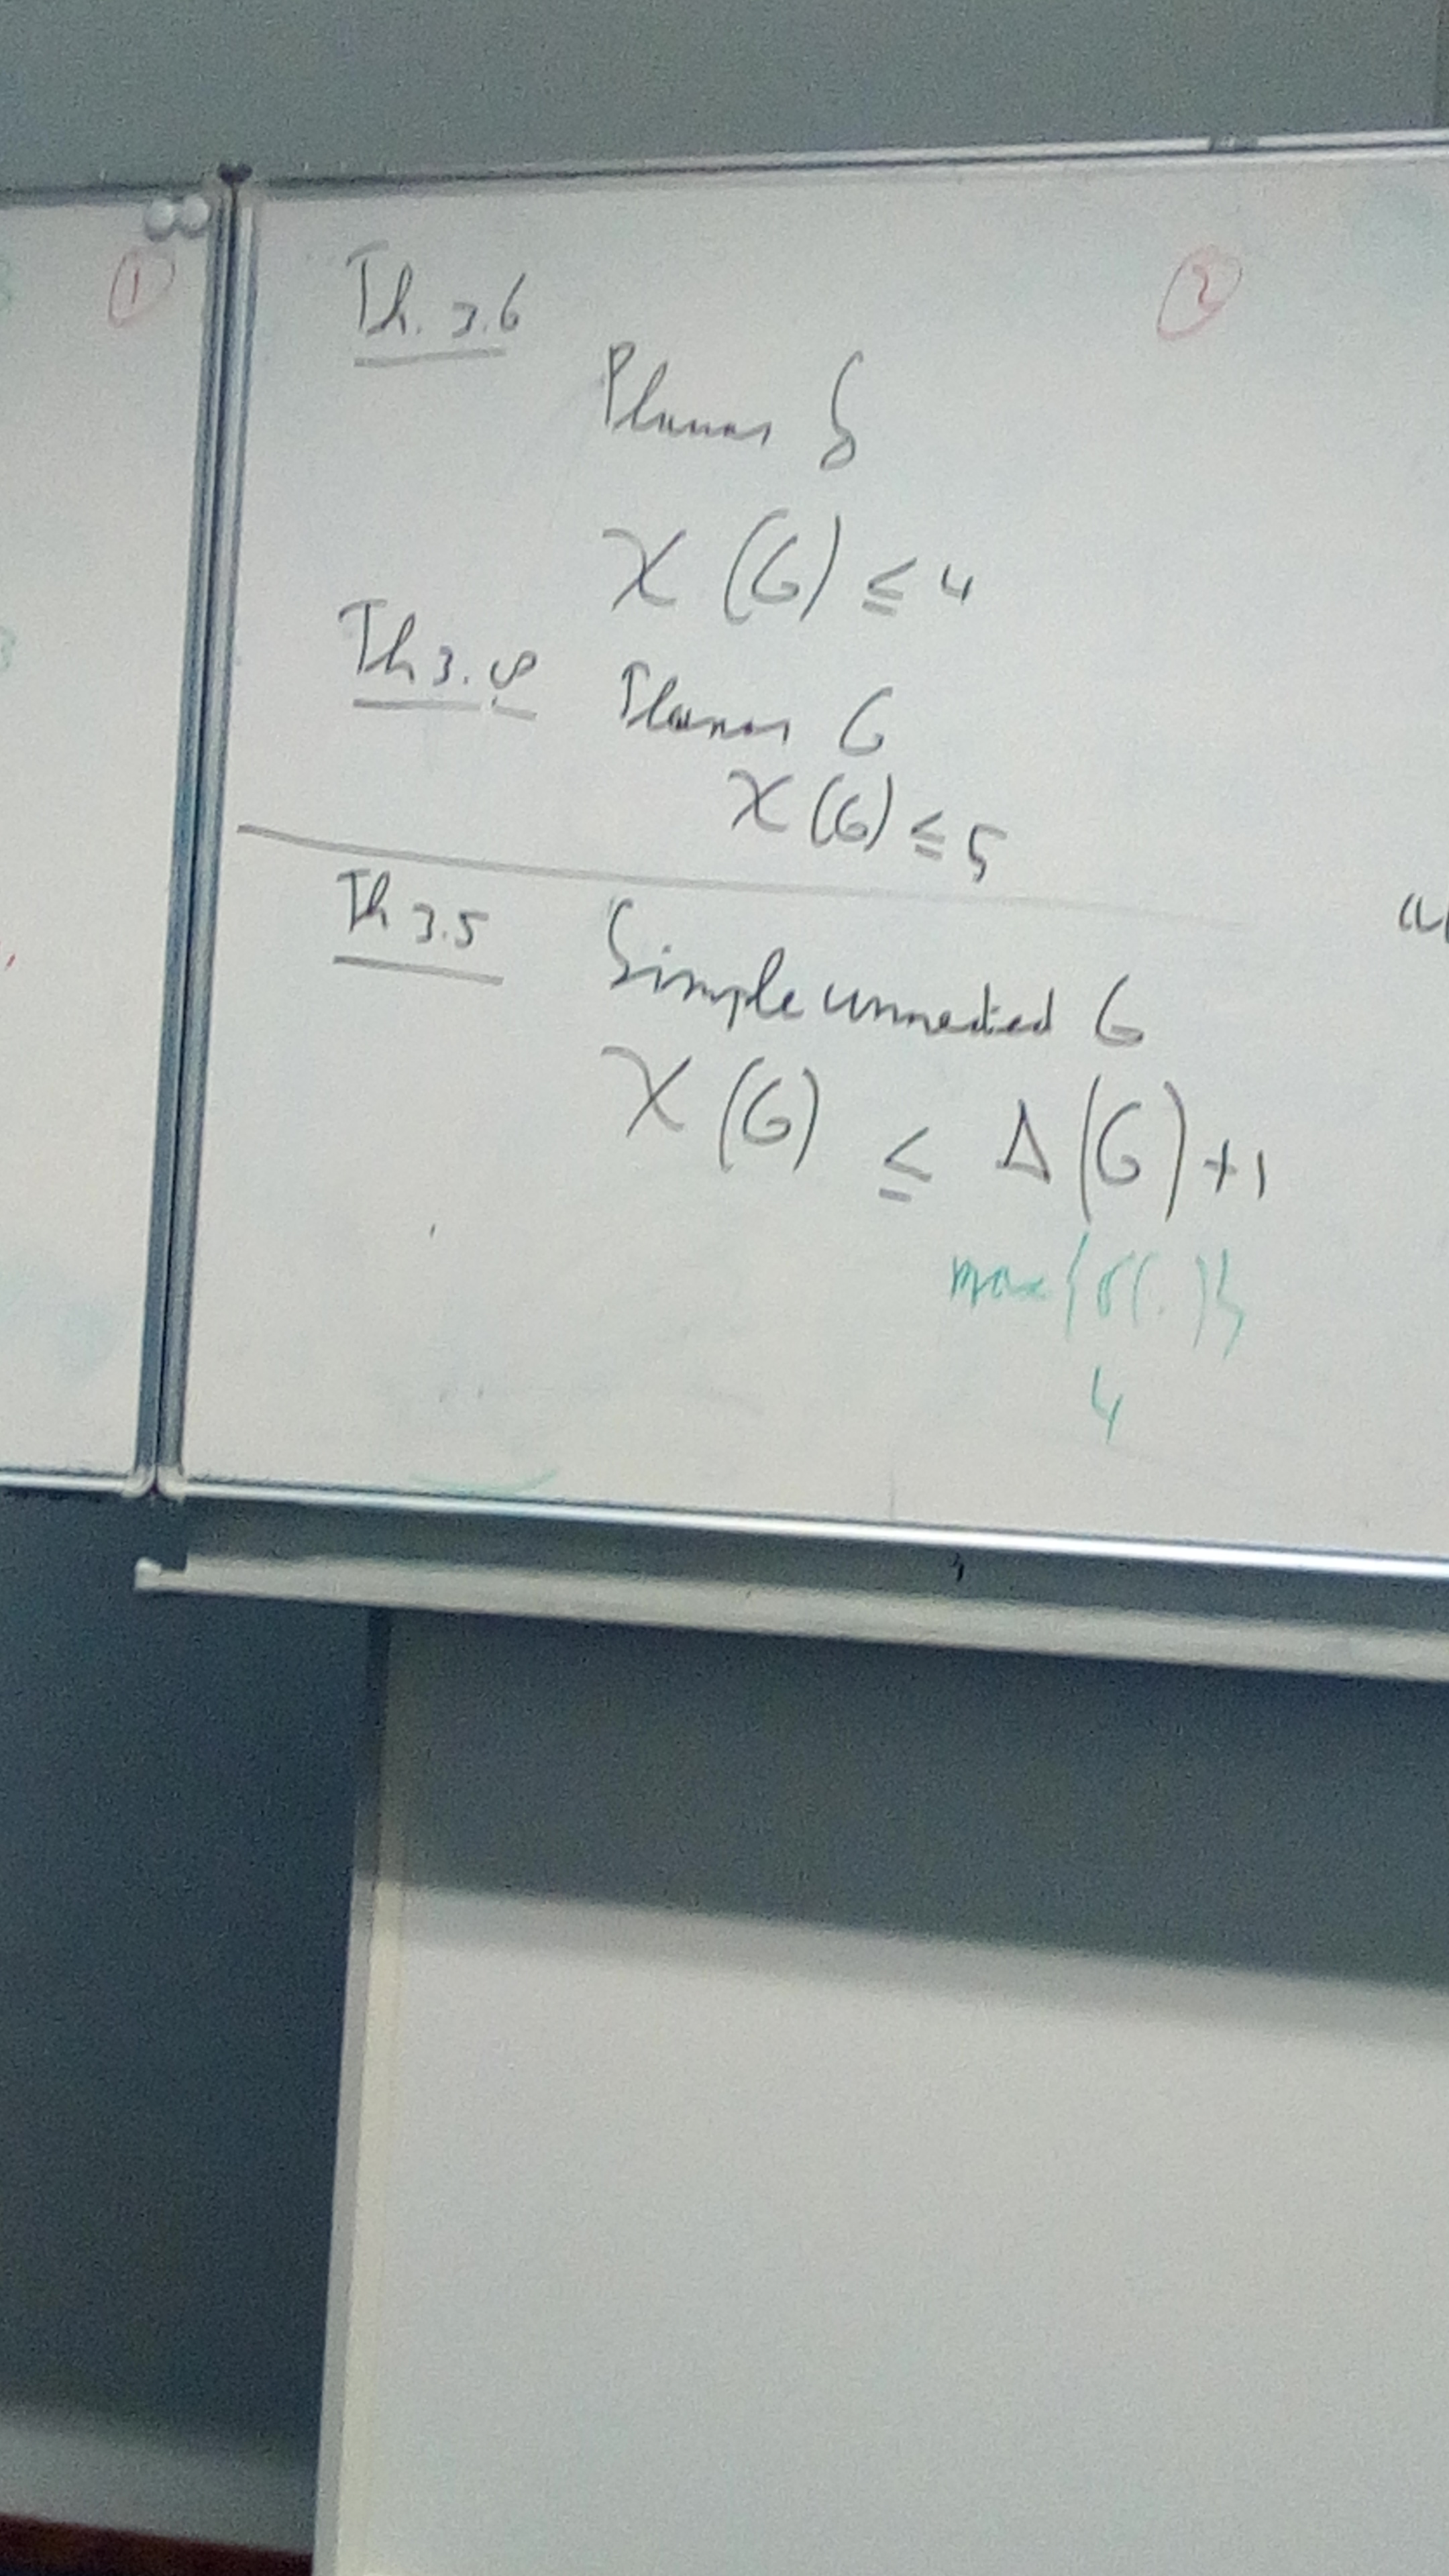 ①
②
Th. 3.6
Planar G
χ (G) ≤ 4
Th 3.8 Planar G
χ (G) ≤ 5
Th 3.5 Simple connected G
χ (G) ≤ Δ(G) + 1
max{δ(.)}
4